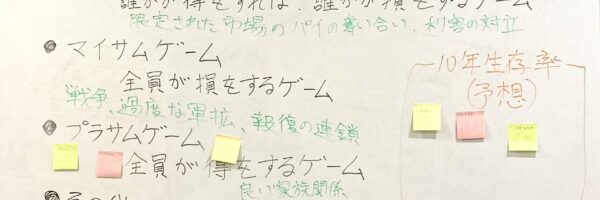 誰かが得をすれば、誰かが損をするゲーム
限定された市場のパイの奪い合い、利害の対立
マイサムゲーム
全員が損をするゲーム
戦争、過度な軍拡、報復の連鎖
プラサムゲーム
全員が得をするゲーム
良い家族関係
10年生存率
予想